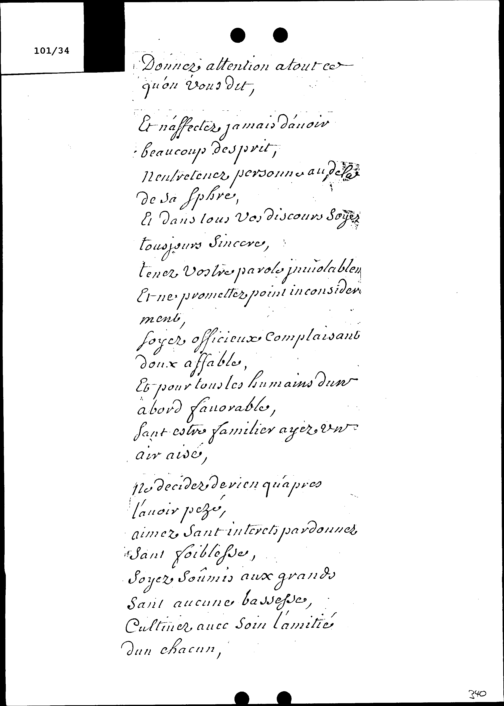 101/34
Donnez attention a tout ce
qu'on vous dit,
Et n'affectez jamais d'avoir
beaucoup desprit,
N'entretenez personne au dela
de sa sphre,
Et dans tous vos discours soyez
tousjours sincere,
tenez vostre parole inviolablem
Et ne promettez point inconsider
ment,
soyez officieux complaisant
doux affable,
Et pour tous les humains dun
abord favorable,
sant estre familier ayez un
air aisé,
Ne decidez de rien qu'apres
l'avoir pezé,
aimez sant interets pardonnez
sant foiblesse,
soyez soûmis aux grands
sant aucune bassesse,
Cultivez avec soin l'amitié
dun chacun,
340